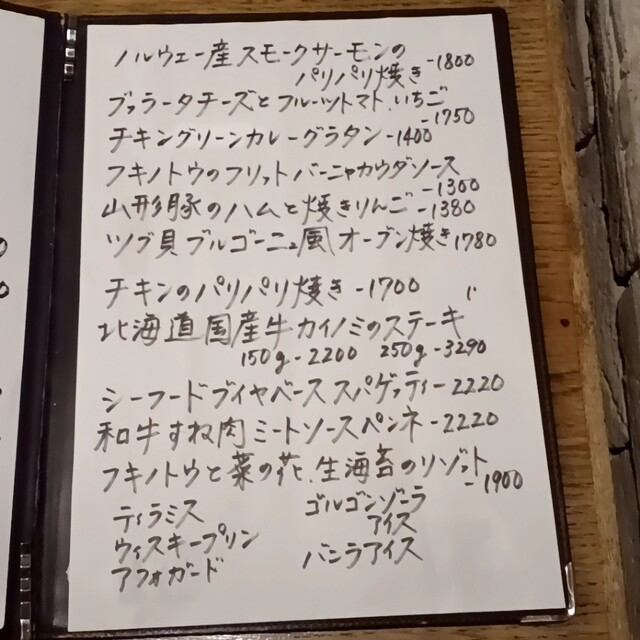 ノルウェー産スモークサーモンの
パリパリ焼き-1800
ブッラータチーズとフルーツトマト、いちご
-1750
チキングリーンカレーグラタン-1400
フキノトウのフリット バーニャカウダソース
-1300
山形豚のハムと焼きりんご-1380
ツブ貝ブルゴーニュ風オーブン焼き1780
チキンのパリパリ焼き-1700
北海道国産牛カイノミのステーキ
150g-2200 250g-3290
シーフードブイヤベーススパゲッティー2220
和牛すね肉ミートソースペンネ-2220
フキノトウと菜の花、生海苔のリゾット
-1900
ティラミス ゴルゴンゾーラ
アイス
ウィスキープリン バニラアイス
アフォガード